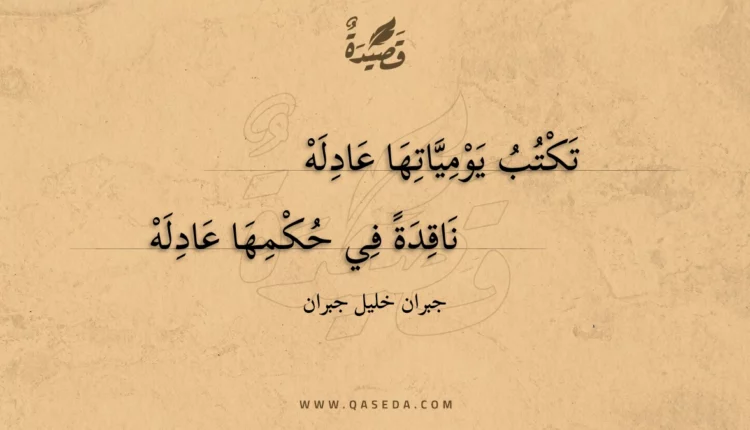 قَصِيدَةٌ
تَكْتُبُ يَوْمِيَّاتِهَا عَادِلَهْ
نَاقِدَةً فِي حُكْمِهَا عَادِلَهْ
جبران خليل جبران
WWW.QASEDA.COM